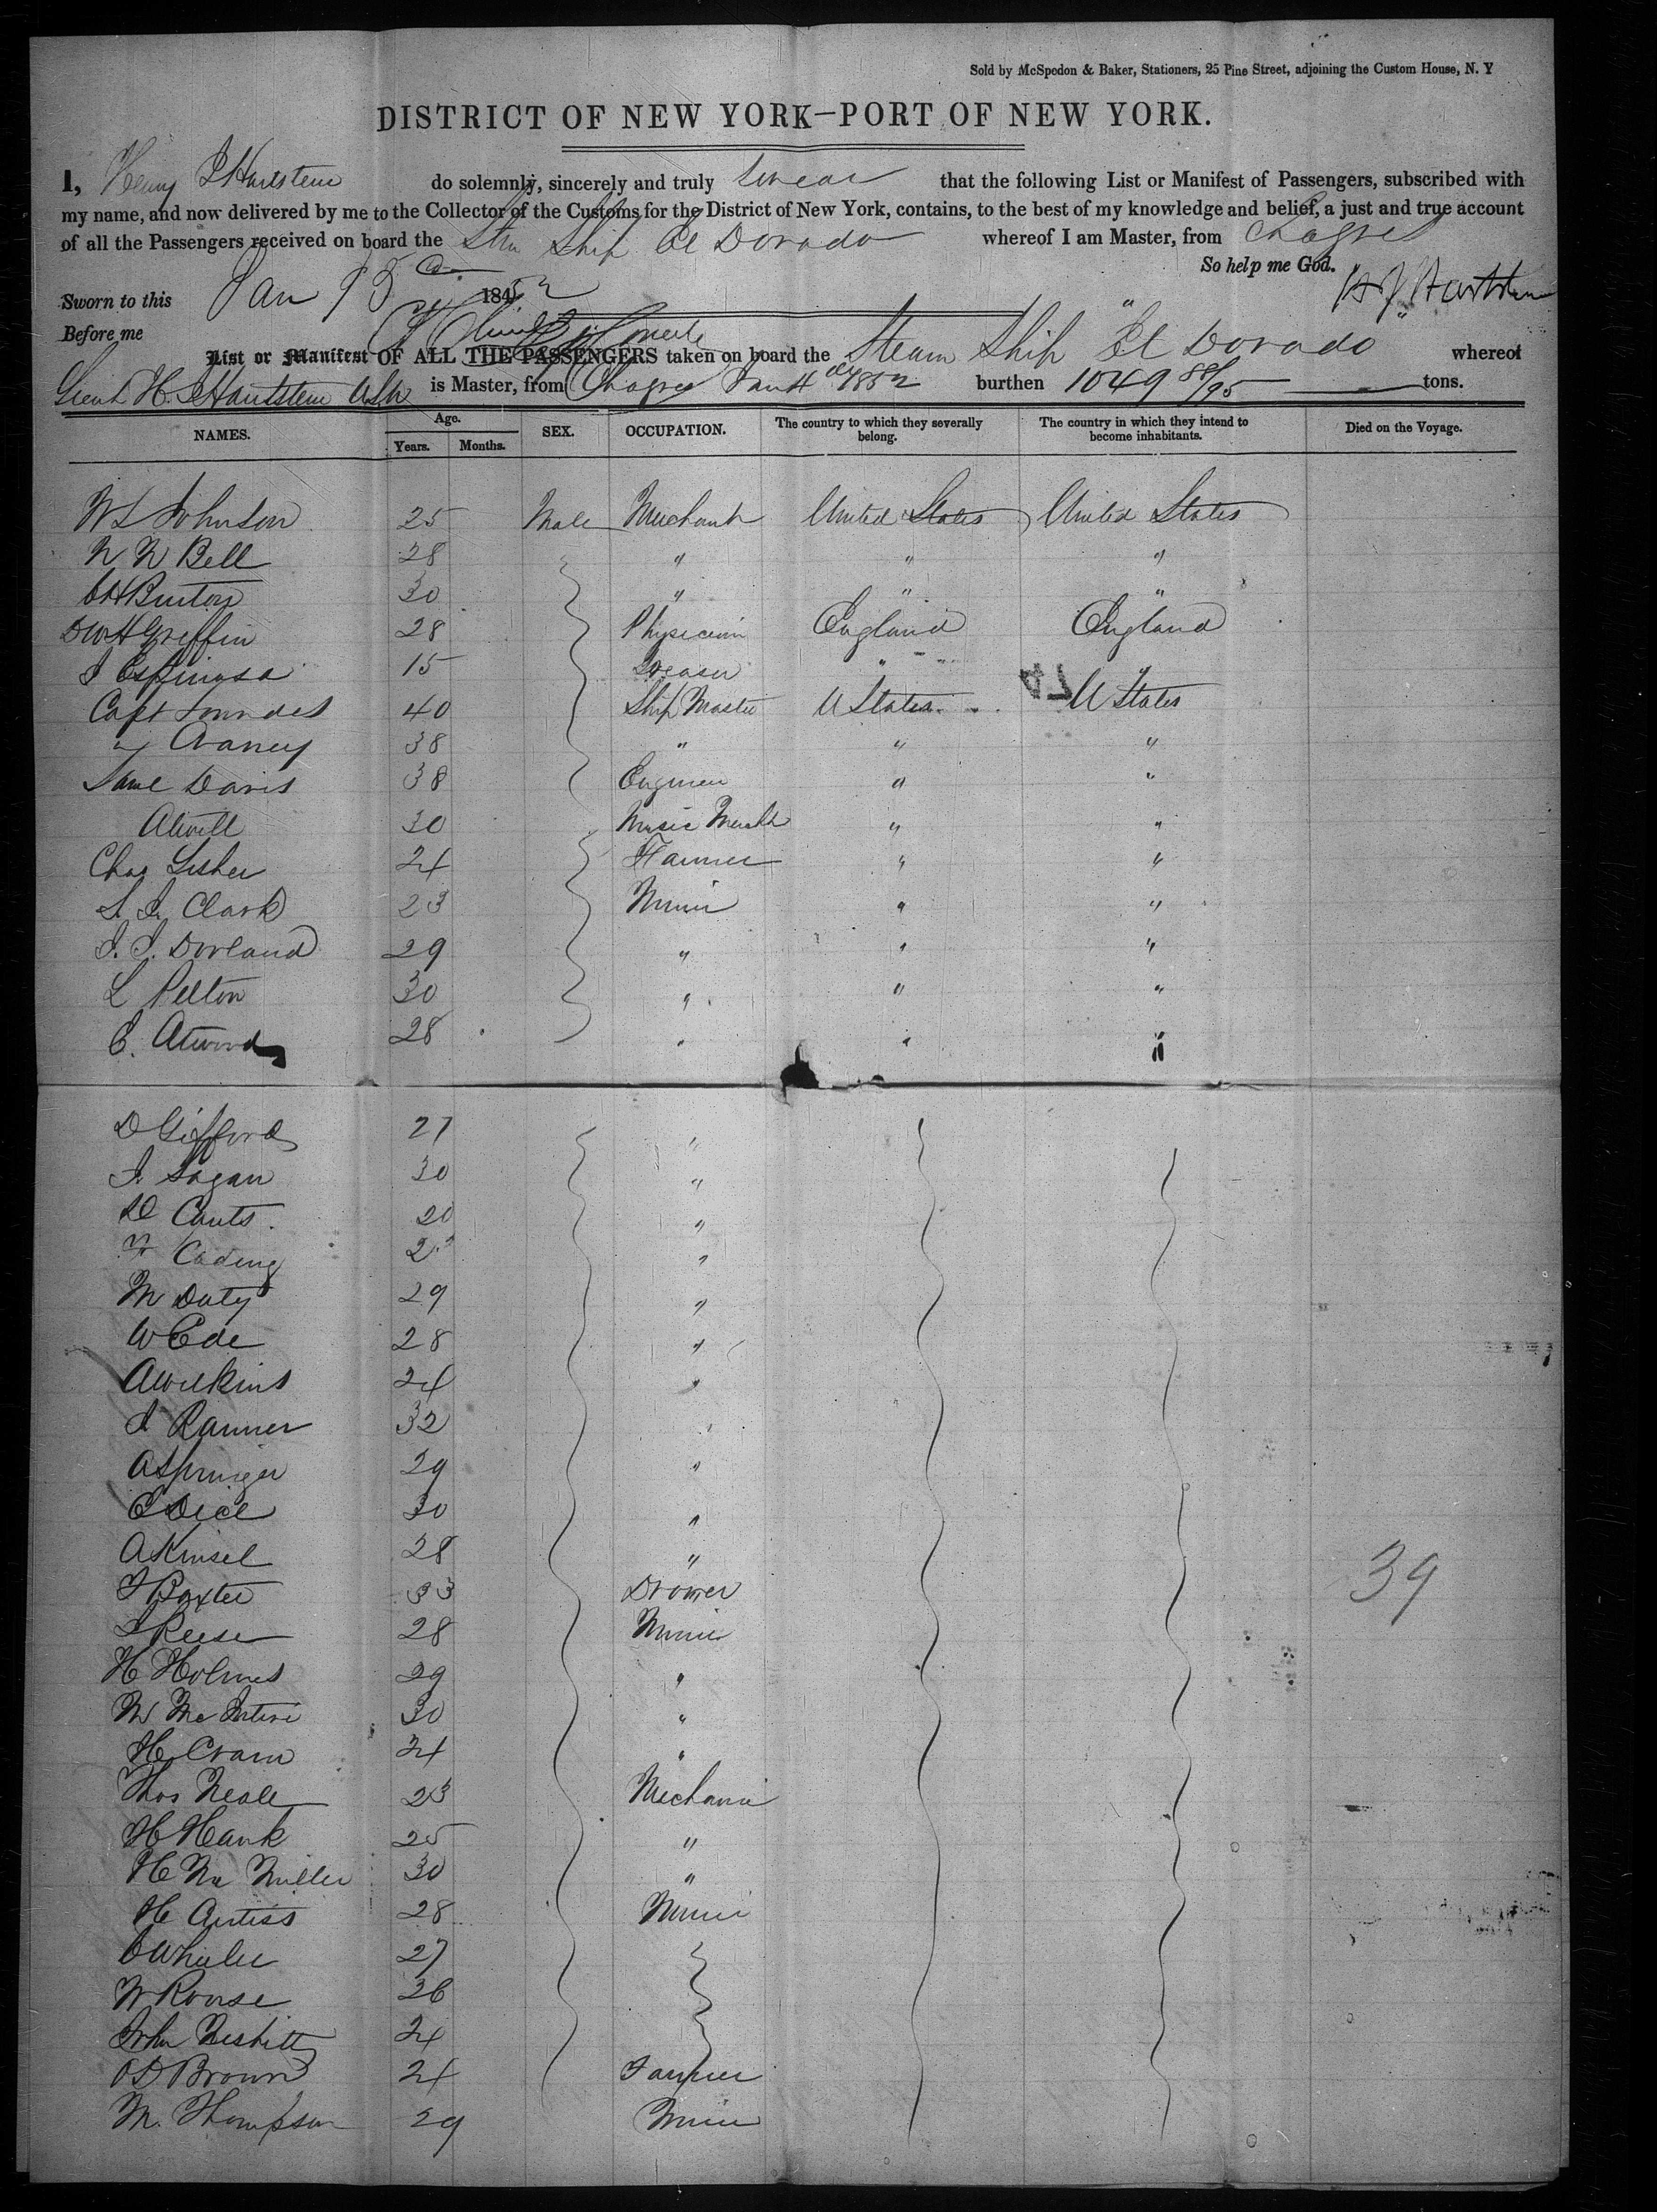 Sold by McSpedon & Baker, Stationers, 25 Pine Street, adjoining the Custom House, N. Y
DISTRICT OF NEW YORK—PORT OF NEW YORK.
I, Henry J Hartstene do solemnly, sincerely and truly swear that the following List or Manifest of Passengers, subscribed with
my name, and now delivered by me to the Collector of the Customs for the District of New York, contains, to the best of my knowledge and belief, a just and true account
of all the Passengers received on board the Stm Ship El Dorado whereof I am Master, from Chagres
So help me God.
Sworn to this Jan 13 1852 H J Hartstene
Before me
List or Manifest OF ALL THE PASSENGERS taken on board the Steam Ship El Dorado whereof
Lieut H. J Hartstene USN is Master, from Chagres Jan 4 1852 burthen 1049 88/95 tons.
NAMES. Age. Years. Months. SEX. OCCUPATION. The country to which they severally belong. The country in which they intend to become inhabitants. Died on the Voyage.
W S Johnson 25 Male Merchant United States United States
N N Bell 28 " " "
C H Burton 30 " " "
D W H Griffin 28 Physician England England
J Espinosa 15 " "
Capt Lowndes 40 Ship Master U States U States
" 38 " " "
Saml Davis 38 Engineer " "
Atwill 30 Music Mercht " "
Chas Lisher 24 Farmer " "
S. S. Clark 23 Miner " "
J. J. Dorland 29 " " "
L Pelton 30 " " "
E. Atwood 28 " " "
D Gifford 27 "
J. Fagan 30 "
D Couts. 20 "
Cading "
M Doty 29 "
W Ede 28 "
A Wilkins 24 "
J Ranner 32 "
A Springer 29 "
E Dice 30 "
A Kinsel 28 "
J Baxter 33 Drover
J Reese 28 Miner
H Holmes 29 "
W McIntire 30 "
H Cram 24 "
Thos Neale 23 Mechanic
H Hank 25 "
H Miller 30 "
H Artiss 28 Miner
C Wheeler 27
W Rouse 26
John Nesbitt 24
O D Brown 24 Farmer
M. Thompson 29 Miner
39